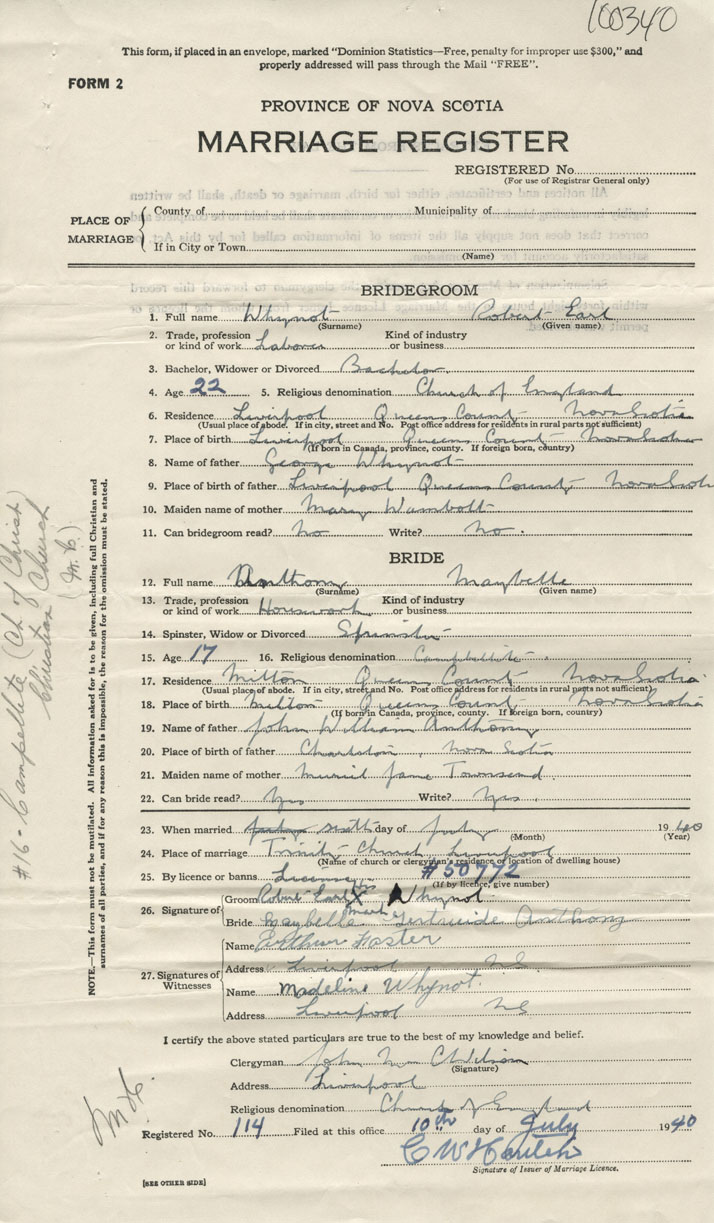 100340
This form, if placed in an envelope, marked "Dominion Statistics—Free, penalty for improper use $300," and
properly addressed will pass through the Mail "FREE".
FORM 2
PROVINCE OF NOVA SCOTIA
MARRIAGE REGISTER
REGISTERED No.
(For use of Registrar General only)
PLACE OF MARRIAGE
County of Municipality of
If in City or Town
(Name)
BRIDEGROOM
1. Full name Whynot Robert Earl
(Surname) (Given name)
2. Trade, profession or kind of work Laborer Kind of industry or business
3. Bachelor, Widower or Divorced Bachelor
4. Age 22 5. Religious denomination Church of England
6. Residence Liverpool Queens County Nova Scotia
(Usual place of abode. If in city, street and No. Post office address for residents in rural parts not sufficient)
7. Place of birth Liverpool Queens County Nova Scotia
(If born in Canada, province, county. If foreign born, country)
8. Name of father George Whynot
9. Place of birth of father Liverpool Queens County Nova Scotia
10. Maiden name of mother Mary Wambolt
11. Can bridegroom read? No Write? No.
BRIDE
12. Full name Anthony Maybelle
(Surname) (Given name)
13. Trade, profession or kind of work Housework Kind of industry or business
14. Spinster, Widow or Divorced Spinster
15. Age 17 16. Religious denomination Campbellite
17. Residence Milton Queens County Nova Scotia
(Usual place of abode. If in city, street and No. Post office address for residents in rural parts not sufficient)
18. Place of birth Milton Queens County Nova Scotia
(If born in Canada, province, county. If foreign born, country)
19. Name of father John William Anthony
20. Place of birth of father Charleston, Nova Scotia
21. Maiden name of mother Muriel Jane Townsend
22. Can bride read? Yes Write? Yes.
23. When married July sixth day of July 1940
(Month) (Year)
24. Place of marriage Trinity Church Liverpool
(Name of church or clergyman's residence or location of dwelling house)
25. By licence or banns License #50772
(If by licence, give number)
26. Signature of
Groom Robert Earl his X mark Whynot
Bride Maybelle Gertruide Anthony
27. Signatures of Witnesses
Name Arthur Foster
Address Liverpool NS
Name Madeline Whynot.
Address Liverpool NS
I certify the above stated particulars are true to the best of my knowledge and belief.
Clergyman John Wilson
(Signature)
Address Liverpool
Religious denomination Church of England
Registered No. 114 Filed at this office 10th day of July 1940
Signature of Issuer of Marriage Licence.
[SEE OTHER SIDE]
NOTE.—This form must not be mutilated. All information asked for is to be given, including full Christian and
surnames of all parties, and if for any reason this is impossible, the reason for the omission must be stated.
#16 - Campellite (Ch of Christ
Christian Church